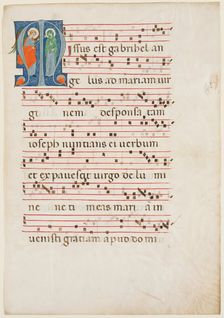 Missus est gabrihel an
gelus ad mariam vir
ginem desponsatam
ioseph nuntians ei verbum
et expavescit virgo de lumi
ne ne timeas maria in
venisti gratiam apud domi